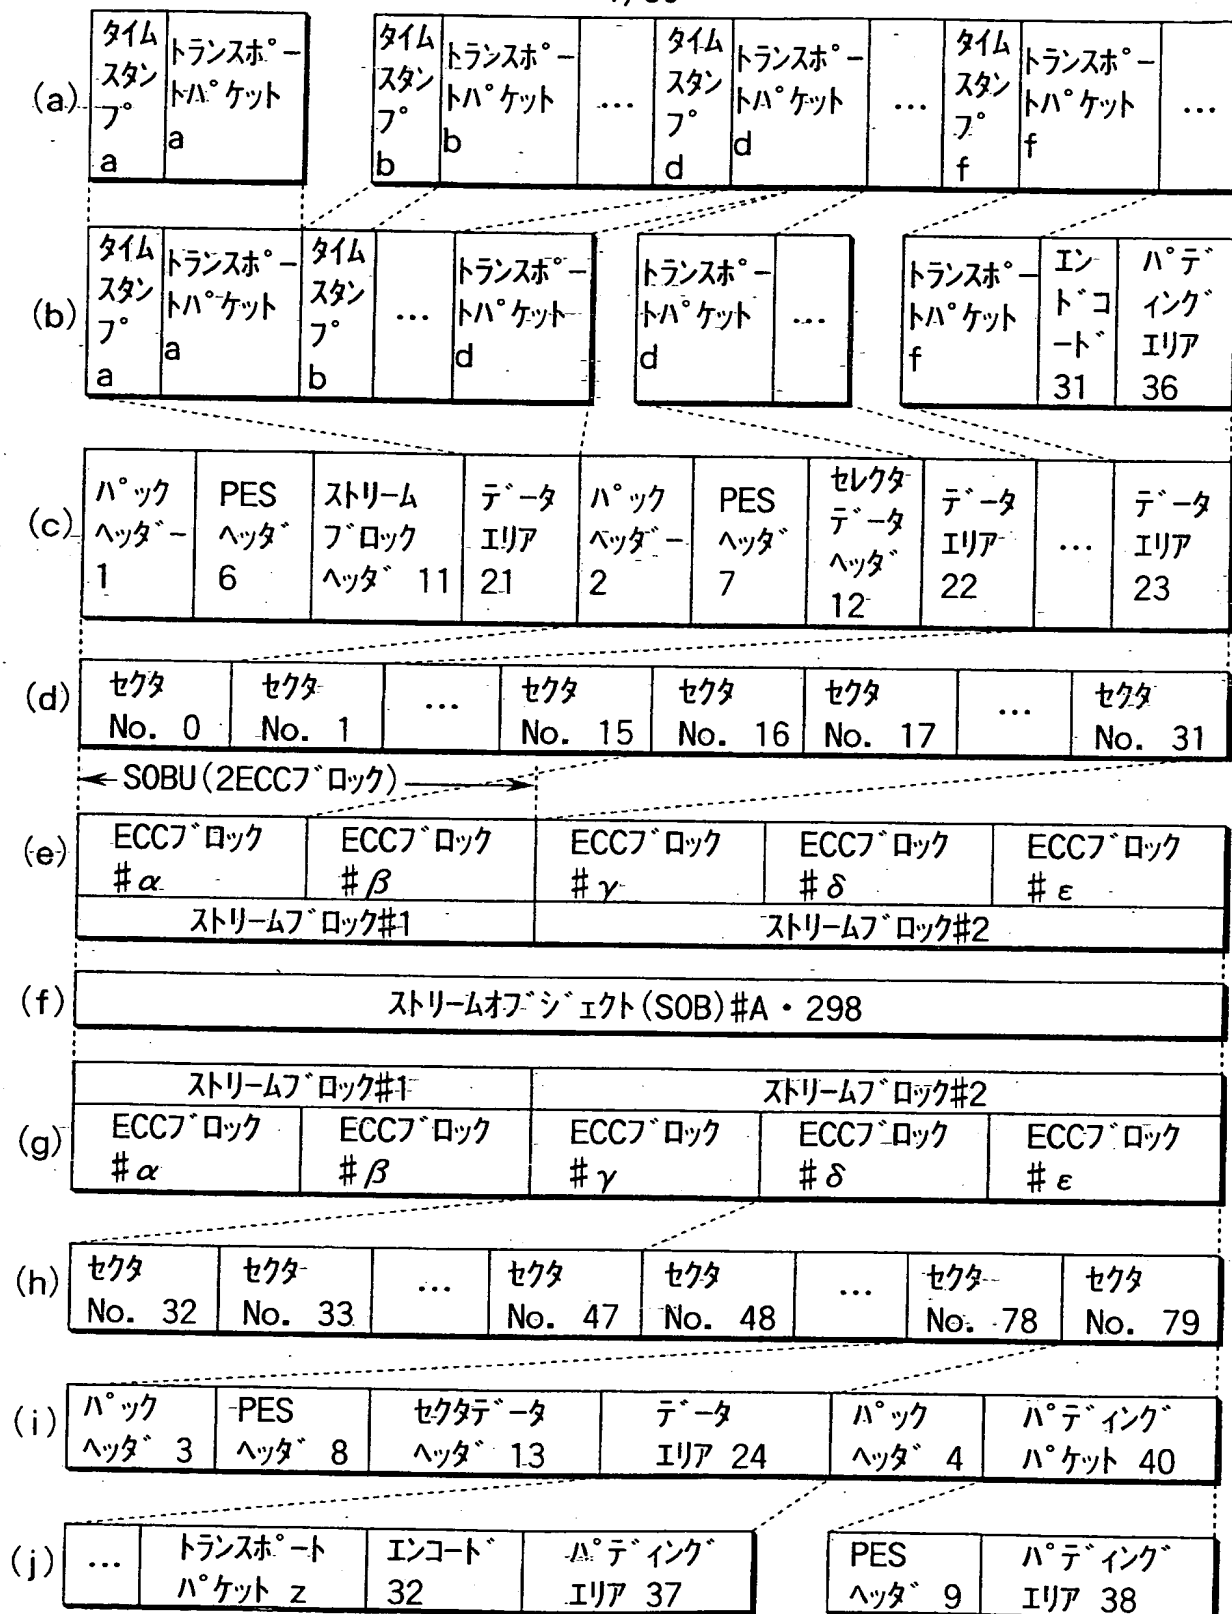 (a)
タイム
スタン
プ
a
トランスポー
トパケット
a
タイム
スタン
プ
b
トランスポー
トパケット
b
…
タイム
スタン
プ
d
トランスポー
トパケット
d
…
タイム
スタン
プ
f
トランスポー
トパケット
f
…
(b)
タイム
スタン
プ
a
トランスポー
トパケット
a
タイム
スタン
プ
b
…
トランスポー
トパケット
d
トランスポー
トパケット
d
…
トランスポー
トパケット
f
エン
ドコ
ード
31
パデ
ィング
エリア
36
(c)
パック
ヘッダー
1
PES
ヘッダ
6
ストリーム
ブロック
ヘッダ 11
データ
エリア
21
パック
ヘッダー
2
PES
ヘッダ
7
セレクタ
データ
ヘッダ
12
データ
エリア
22
…
データ
エリア
23
(d)
セクタ
No. 0
セクタ
No. 1
…
セクタ
No. 15
セクタ
No. 16
セクタ
No. 17
…
セクタ
No. 31
SOBU(2ECCブロック)
(e)
ECCブロック
#α
ECCブロック
#β
ECCブロック
#γ
ECCブロック
#δ
ECCブロック
#ε
ストリームブロック#1
ストリームブロック#2
(f)
ストリームオブジェクト(SOB)#A・298
(g)
ストリームブロック#1
ストリームブロック#2
ECCブロック
#α
ECCブロック
#β
ECCブロック
#γ
ECCブロック
#δ
ECCブロック
#ε
(h)
セクタ
No. 32
セクタ
No. 33
…
セクタ
No. 47
セクタ
No. 48
…
セクタ
No. 78
セクタ
No. 79
(i)
パック
ヘッダ 3
PES
ヘッダ 8
セクタデータ
ヘッダ 13
データ
エリア 24
パック
ヘッダ 4
パディング
パケット 40
(j)
…
トランスポート
パケット z
エンコード
32
パディング
エリア 37
PES
ヘッダ 9
パディング
エリア 38